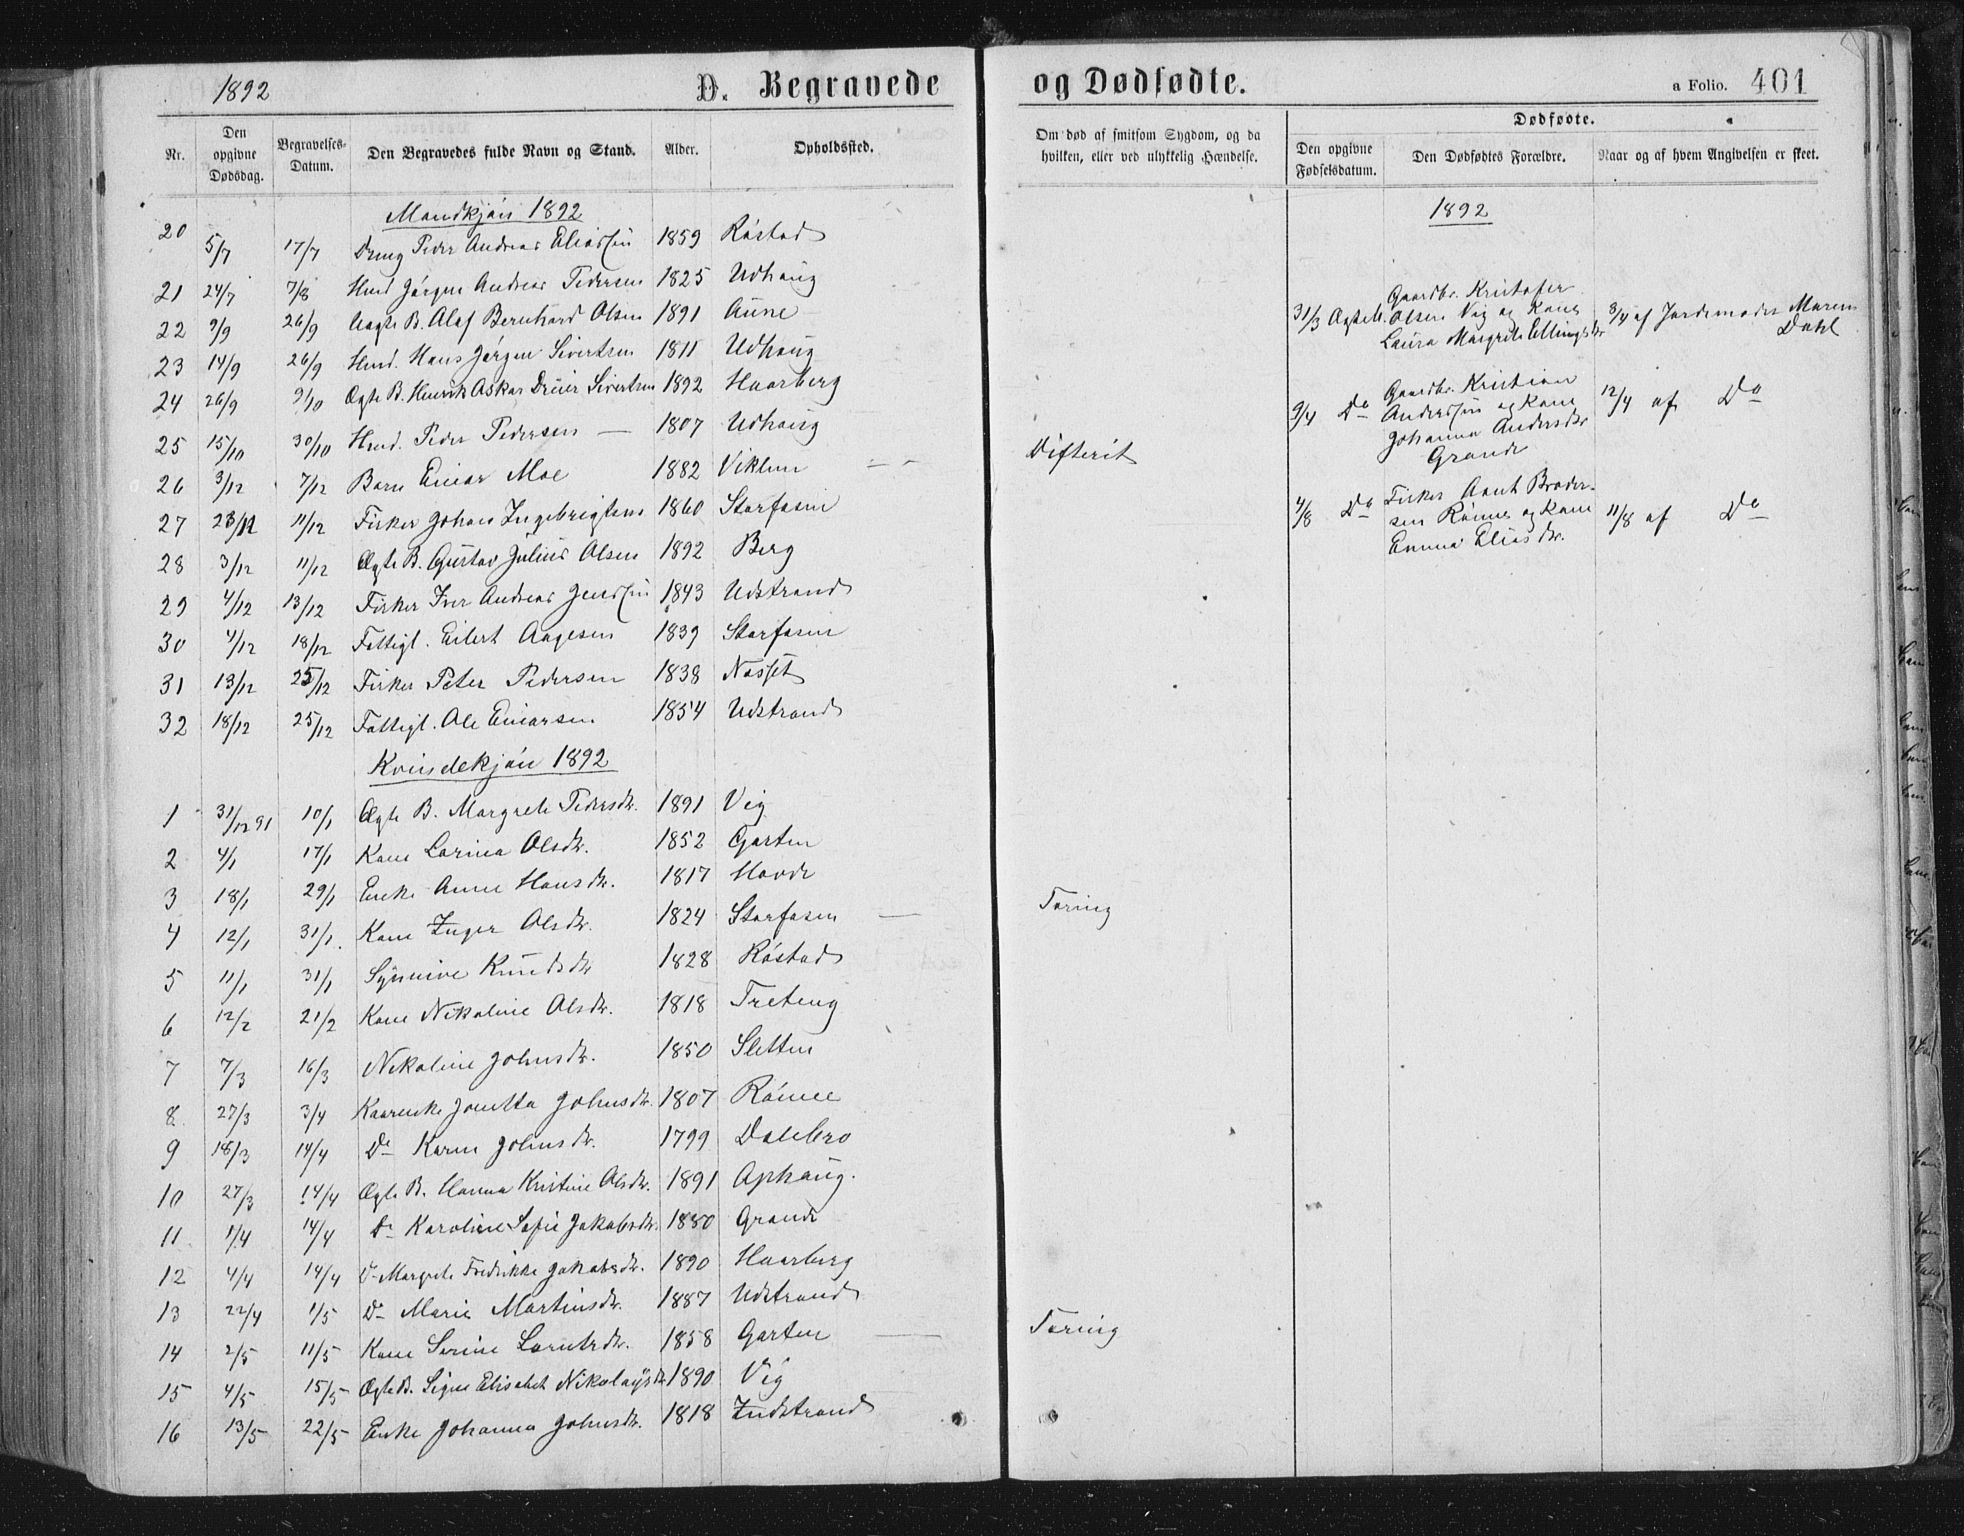 1892
D. Begravede og Dødfødte.
a Folio. 401
Nr.
Den opgivne Dødsdag.
Begravelses-Datum.
Den Begravedes fulde Navn og Stand.
Alder.
Opholdssted.
Om død af smitsom Sygdom, og da hvilken, eller ved ulykkelig Hændelse.
Dødfødte.
Den opgivne Fødselsdatum.
Den Dødfødtes Forældre.
Naar og af hvem Angivelsen er skeet.
Mandkjön 1892
20 5/7 17/7 Dreng Peder Andreas Eliassen 1859 Röstad
21 24/7 7/8 Huusm. Jörgen Andreas Pedersen 1825 Udhaug
22 9/9 26/9 Ægte B. Olaf Bernhard Olsen 1891 Aune
23 14/9 26/9 Hans Jörgen Sivertsen 1811 Udhaug
24 26/9 9/10 Ægte B. Henrik Oskar Sivertsen 1892 Haarberg
25 15/10 30/10 Peder Pedersen — 1807 Udhaug
26 3/12 7/12 Barn Einar Moe 1882 Viklem — Difterit
27 23/11 11/12 Fisker Johan Ingebrigtsen 1860 Storfosen
28 3/12 11/12 Ægte B. Gustav Julius Olsen 1892 Berg
29 4/12 13/12 Fisker Iver Andreas Jenssen 1843 Udstrand
30 4/12 18/12 Fattigl. Eilert Aagesen 1839 Storfosen
31 13/12 25/12 Fisker Peter Pedersen 1838 Næsset
32 18/12 25/12 Fattigl. Ole Einarsen 1854 Udstrand
Kvindekjön 1892
1 31/12 91 10/1 Ægte B. Margrete Pedersdr. 1891 Vig
2 4/1 17/1 Kone Larina Olsdr. 1852 Garten
3 18/1 29/1 Enke Anne Hansdr. 1817 Hovde
4 12/1 31/1. Kone Inger Olsdr. 1824 Storfosen — Tæring
5 11/1 31/1 Synnive Knudsdr 1828 Röstad
6 12/2 21/2 Kone Nikoline Olsdr. 1818 Treteng
7 7/3 16/3 Nikoline Johnsdr. 1850 Sletten
8 27/3 3/4 Kaarenke Jonetta Johnsdr. 1807 Rönne
9 18/3 14/4 Do Karen Johnsdr. 1799 Dalebro
10 27/3 14/4 Ægte B. Hanna Kristine Olsdr. 1891 Ophaug.
11 1/4 14/4 Do Karoline Sofie Jakobsdr. 1880 Grande
12 4/4 14/4 Do Margrete Fredrikke Jakobsdr. 1890 Haarberg
13 22/4 1/5 Do Marie Martinsdr. 1887 Udstrand
14 2/5 11/5 Kone Serine Lorntsdr. 1858 Garten — Tæring
15 4/5 15/5 Ægte B. Signe Elisabet Nikolaysdr 1890 Vig
16 13/5 22/5 Enke Johanna Johnsdr. 1818 Indstrand
1892
31/3 Ægte B. Gaardbr. Kristofer
Olsen Vig og Kone 3/4 af Jordemoder Maren
Laura Margrete Ellingsdr Dahl
9/4 Do Gaardbr. Kristian
Anderssen og Kone 12/4 af Do
Johanna Andersdr
Grande
4/8 Do Fisker Arnt Broder-
sen Rönne og Kone 11/8 af Do
Emma Eliasdr.